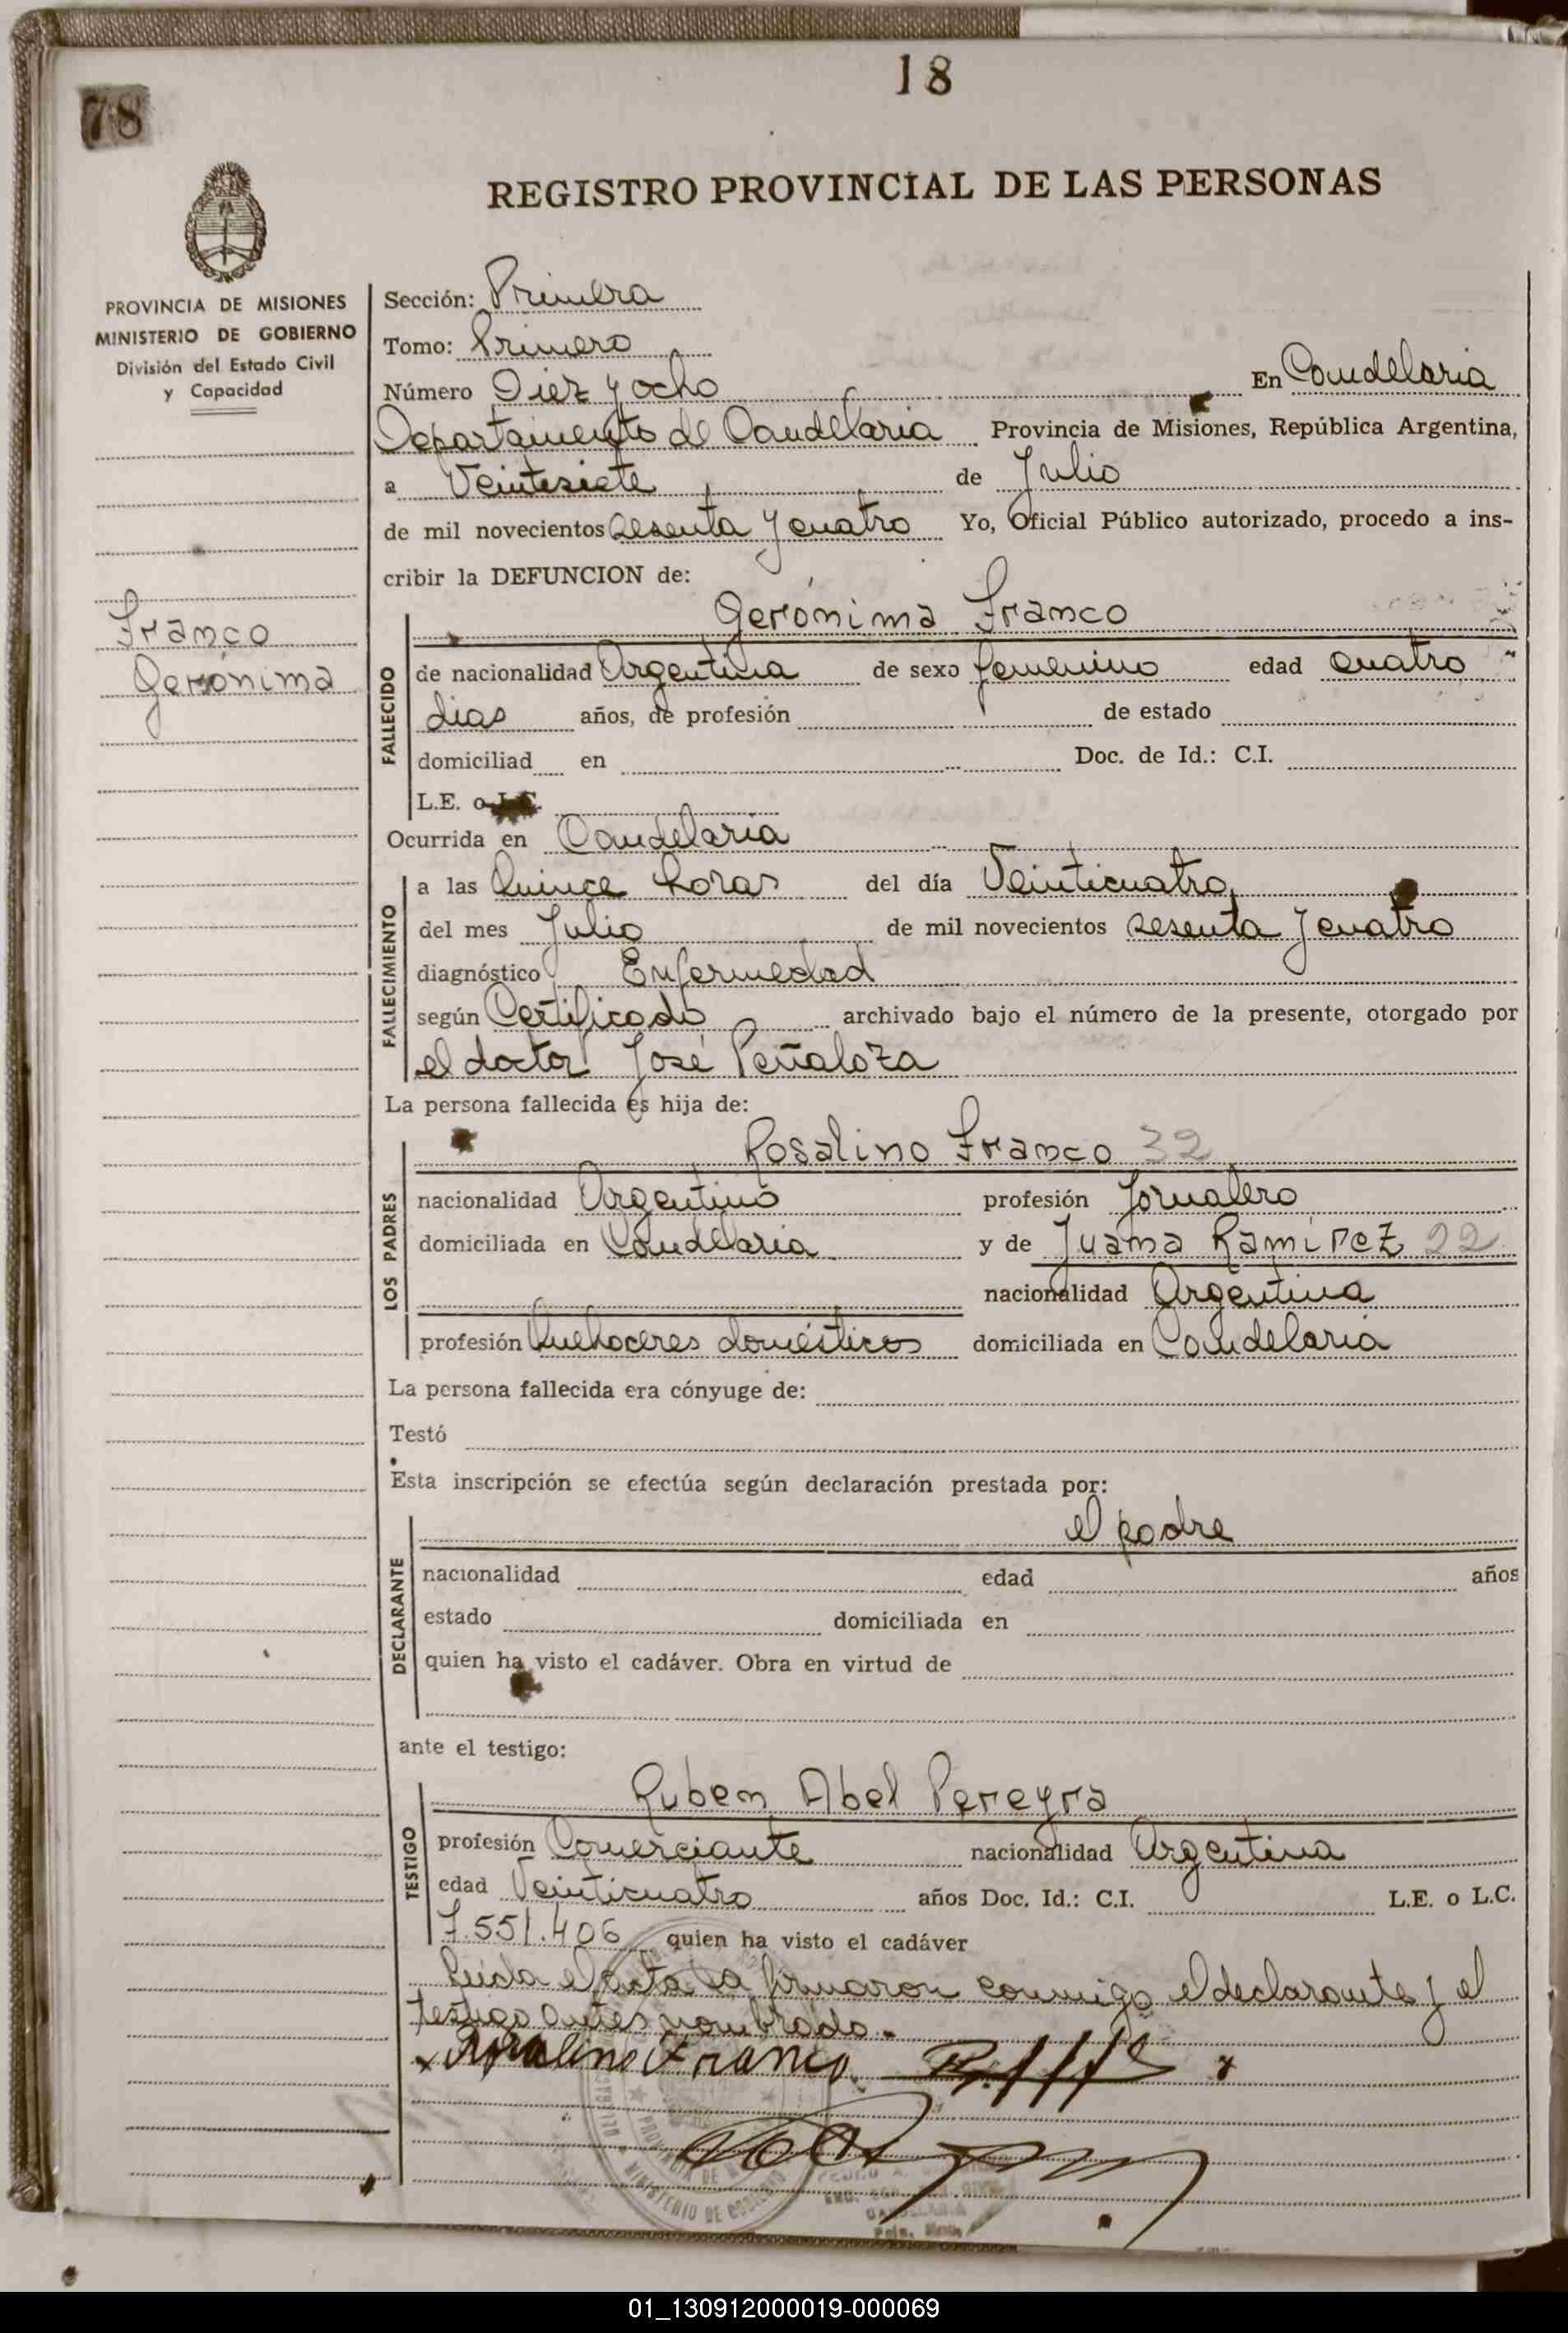 18
78
REGISTRO PROVINCIAL DE LAS PERSONAS
PROVINCIA DE MISIONES
MINISTERIO DE GOBIERNO
División del Estado Civil
y Capacidad
Sección: Primera
Tomo: Primero
Número Diez y ocho En Candelaria
Departamento de Candelaria Provincia de Misiones, República Argentina,
a Veintesiete de Julio
de mil novecientos sesenta y cuatro Yo, Oficial Público autorizado, procedo a ins-
cribir la DEFUNCION de:
Franco
Gerónima
Gerónima Franco
FALLECIDO
de nacionalidad Argentina de sexo femenino edad cuatro
dias años, de profesión de estado
domiciliad en Doc. de Id.: C.I.
L.E. o L.C.
Ocurrida en Candelaria
FALLECIMIENTO
a las Quince horas del día Veinticuatro
del mes Julio de mil novecientos sesenta y cuatro
diagnóstico Enfermedad
según Certificado archivado bajo el número de la presente, otorgado por
el doctor José Peñaloza
La persona fallecida es hija de:
LOS PADRES
Rosalino Franco 32
nacionalidad Argentino profesión Jornalero
domiciliada en Candelaria y de Juana Ramírez 22
nacionalidad Argentina
profesión Quehaceres domésticos domiciliada en Candelaria
La persona fallecida era cónyuge de:
Testó
Esta inscripción se efectúa según declaración prestada por:
DECLARANTE
el padre
nacionalidad edad años
estado domiciliada en
quien ha visto el cadáver. Obra en virtud de
ante el testigo:
TESTIGO
Ruben Abel Pereyra
profesión Comerciante nacionalidad Argentina
edad Veinticuatro años Doc. Id.: C.I. L.E. o L.C.
7.551.406 quien ha visto el cadáver
Leida el acta la firmaron conmigo el declarante y el
testigo antes nombrado.-
Rosalino Franco
PROVINCIA DE
MINISTERIO DE GOBIERNO
01_130912000019-000069